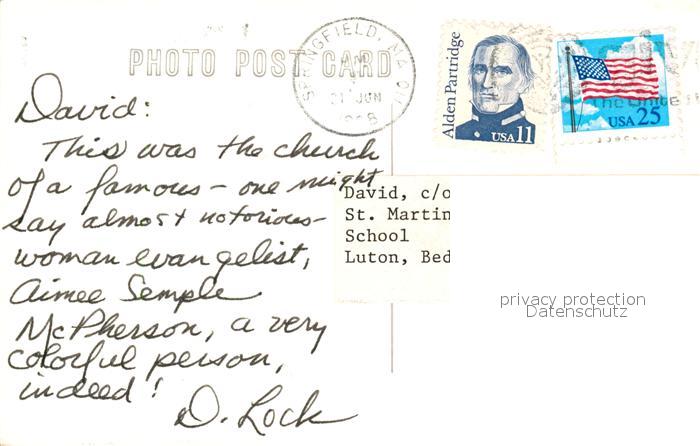 PHOTO POST CARD
SPRINGFIELD, MA
21 JUN
Alden Partridge
USA 11
USA 25
David:
This was the church
of a famous - one might
say almost notorious -
woman evangelist,
Aimee Semple
McPherson, a very
colorful person,
indeed!
D. Lock
David, c/o
St. Martin
School
Luton, Bed
privacy protection
Datenschutz